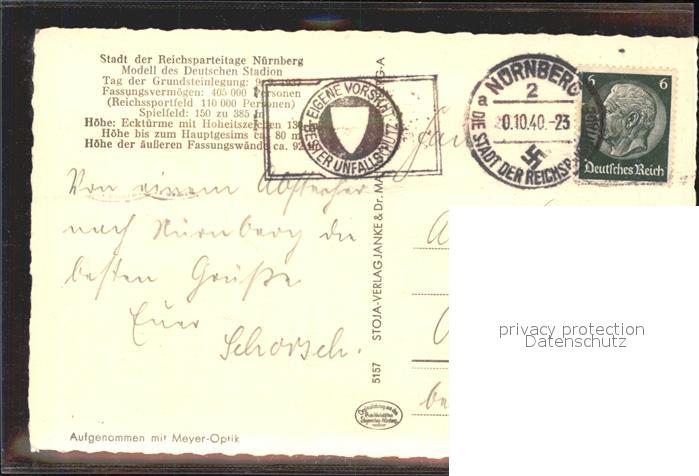 Stadt der Reichsparteitage Nürnberg
Modell des Deutschen Stadion
Tag der Grundsteinlegung: 9. 9. 1937
Fassungsvermögen: 405 000 Personen
(Reichssportfeld 110 000 Personen)
Spielfeld: 150 zu 385 m
Höhe: Ecktürme mit Hoheitszeichen 130
Höhe bis zum Hauptgesims ca. 80 m
Höhe der äußeren Fassungswände ca. 92
EIGENE VORSICHT
BESTER UNFALLSCHUTZ
NÜRNBERG
2
a
0.10.40.-23
DIE STADT DER REICHSP
6 6
Deutsches Reich
Von einem Abstecher
nach Nürnberg die
besten Grüße
Euer
Schorsch.
5157 STOJA-VERLAG JANKE & Dr. MA
Aufgenommen mit Meyer-Optik
privacy protection
Datenschutz